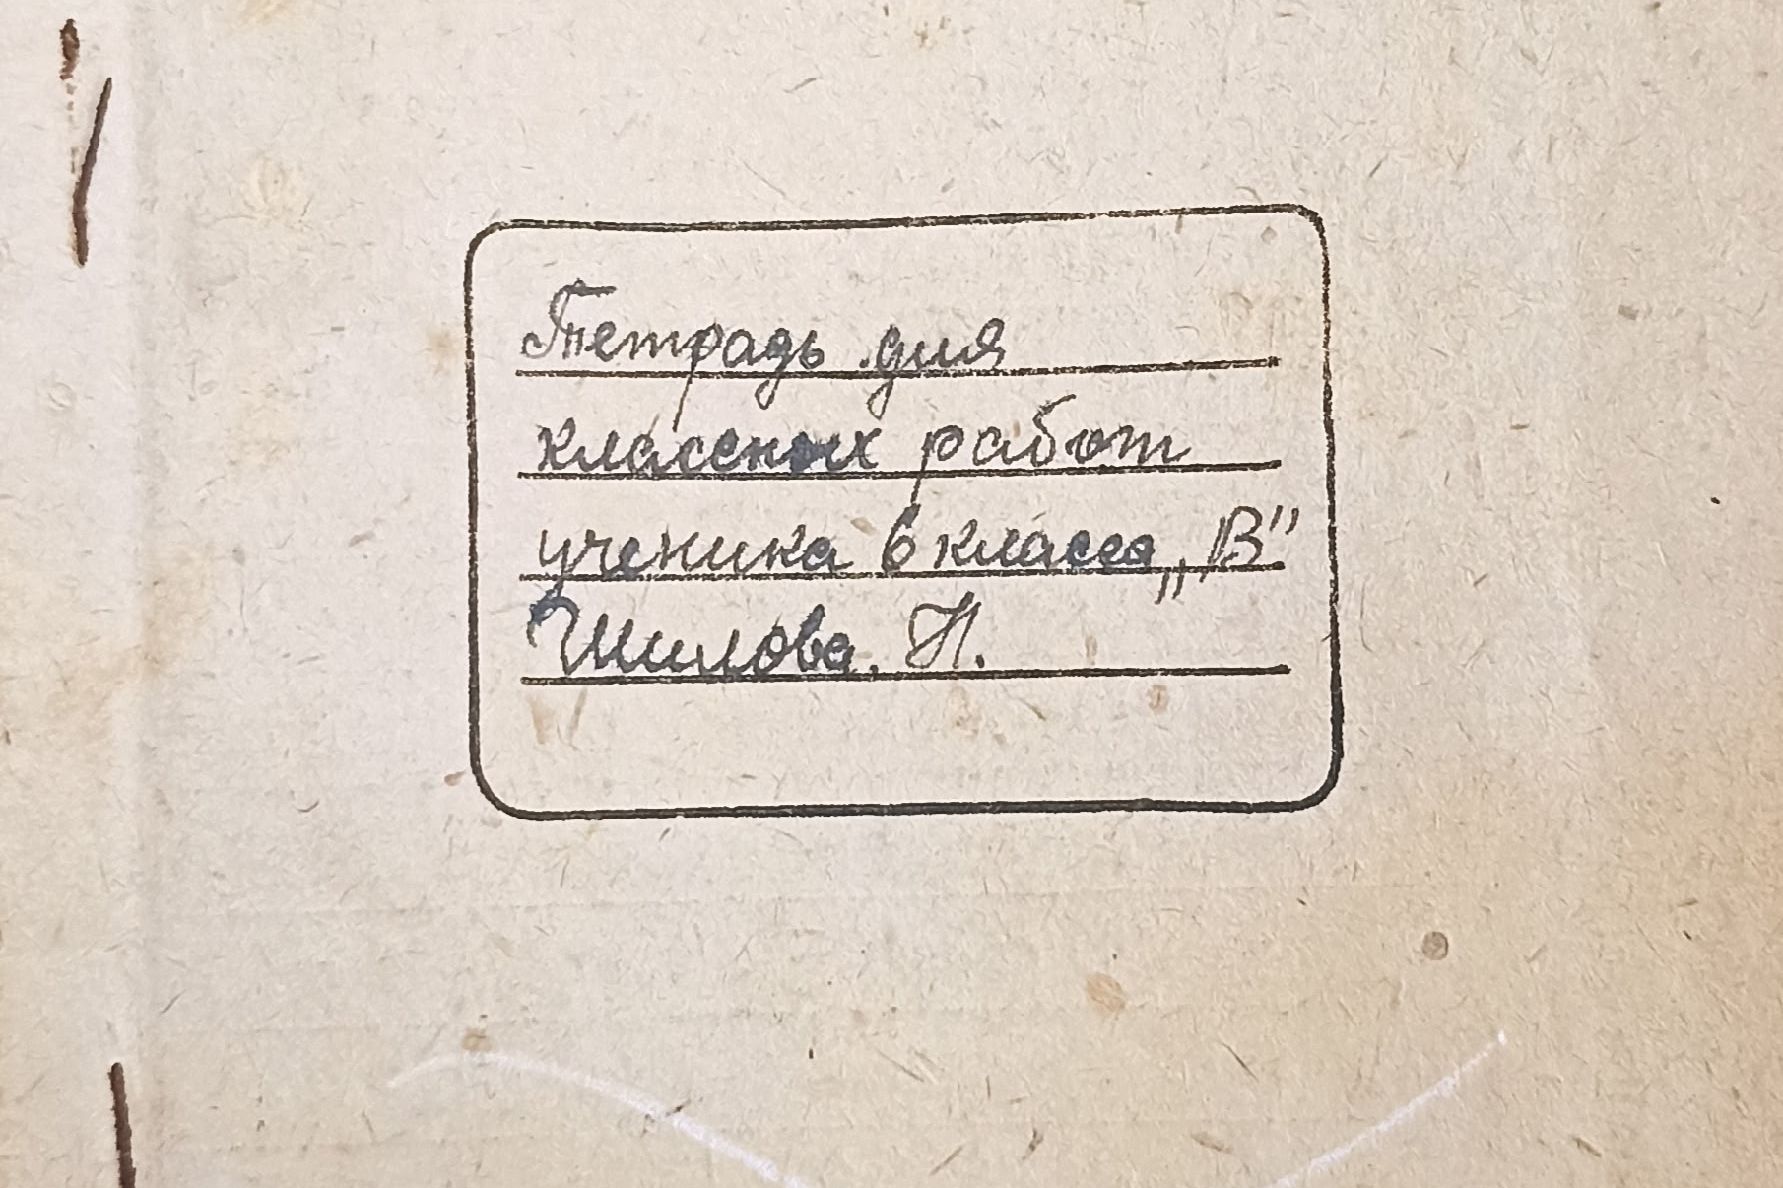 Тетрадь для
классных работ
ученика 6 класса „В"
Шилова. Н.